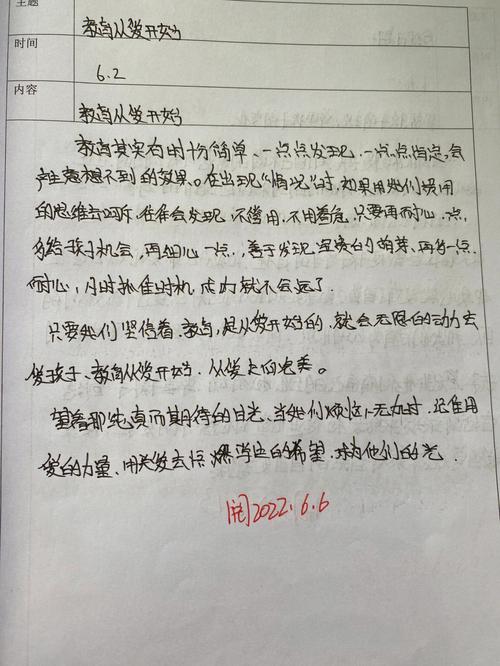 主题
教育从爱开始
时间
6.2
内容
教育从爱开始
教育其实有时十分简单、一点点发现、一点点肯定，会
产生意想不到的效果。在出现"情况"时，如果用我们惯用
的思维去呵斥，往往会发现，不管用，不用着急，只要再耐心一点，
多给孩子机会，再细心一点，善于发现
耐心，及时抓住时机，成功就不会远了。
只要我们坚信着，教育，是从爱开始的，就会无限的动力去
爱孩子，教育从爱开始，从爱走向完美。
望着那纯真而其期待的目光，当我们烦恼、无助时，记住用
爱的力量、用关爱去学生的希望，成为他们的光．
阅2022.6.6